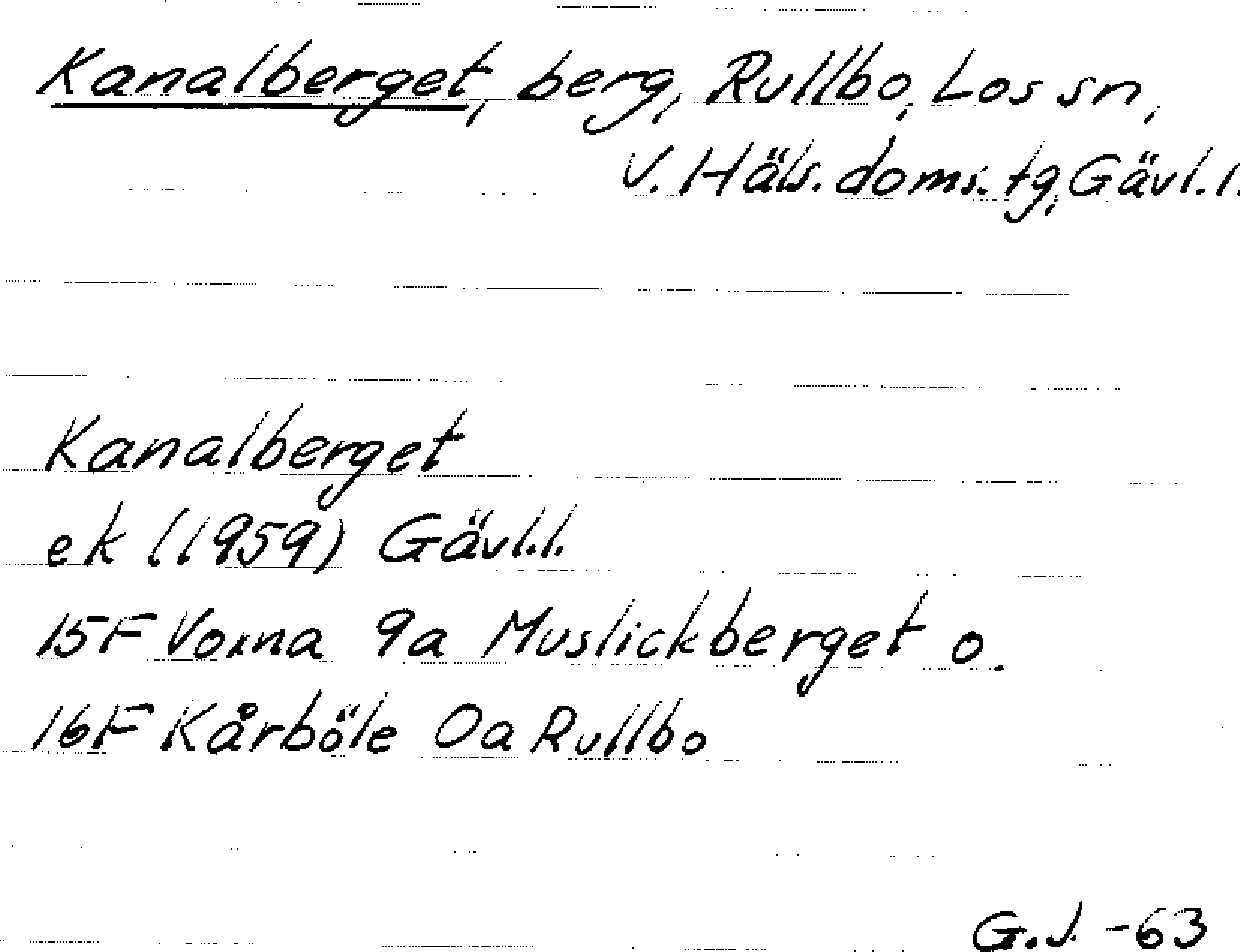 Kanalberget, berg, Rullbo, Los sn,
V. Häls. doms. tg, Gävl. l.
Kanalberget
ek (1959) Gävl.l.
15F Voxna 9a Muslickberget o.
16F Kårböle 0a Rullbo
G.J. -63